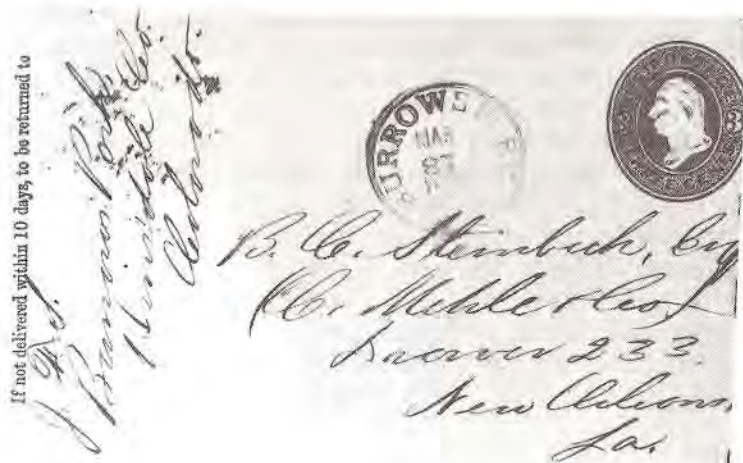 If not delivered within 10 days, to be returned to
Park,
Hinsdale Co.
Colorado.
URROWS
MAR
B. C. Steinbech,
(C. Mehle & Co.)
Drawer 233.
New Orleans,
La.